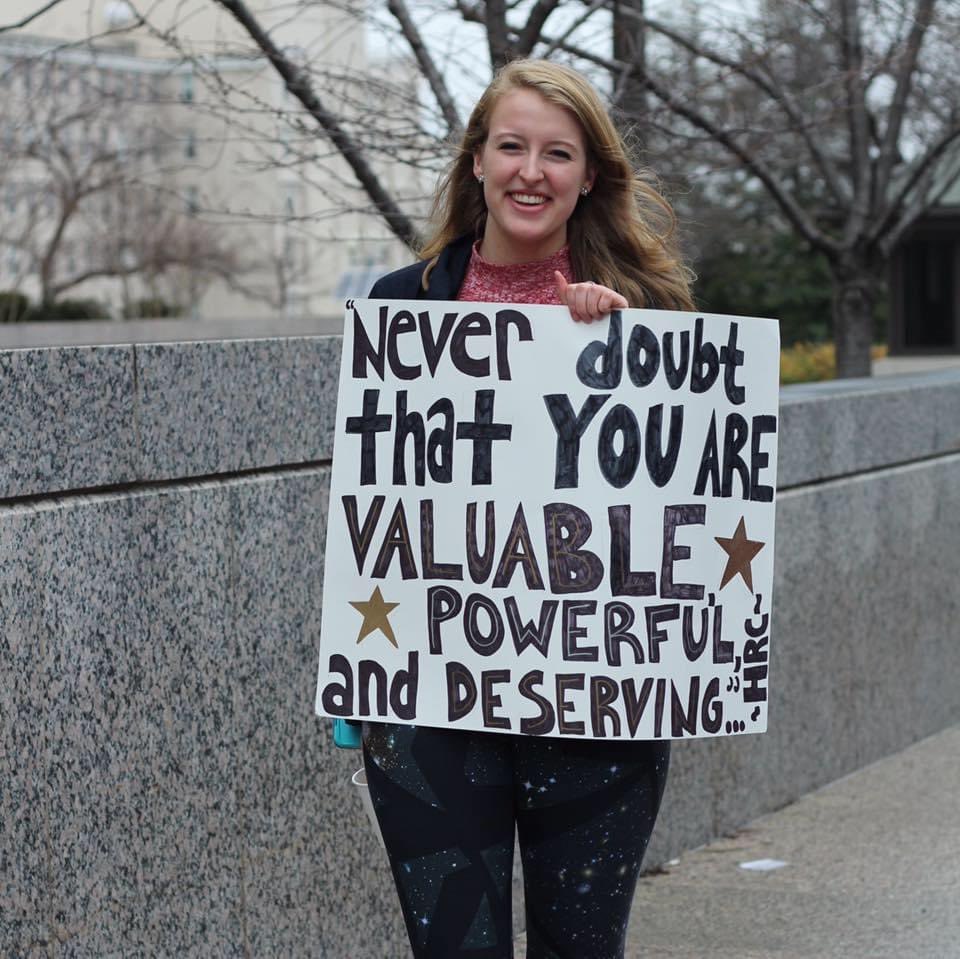 "Never doubt
that YOU ARE
VALUABLE,
POWERFUL,
and DESERVING..."
~HRC~